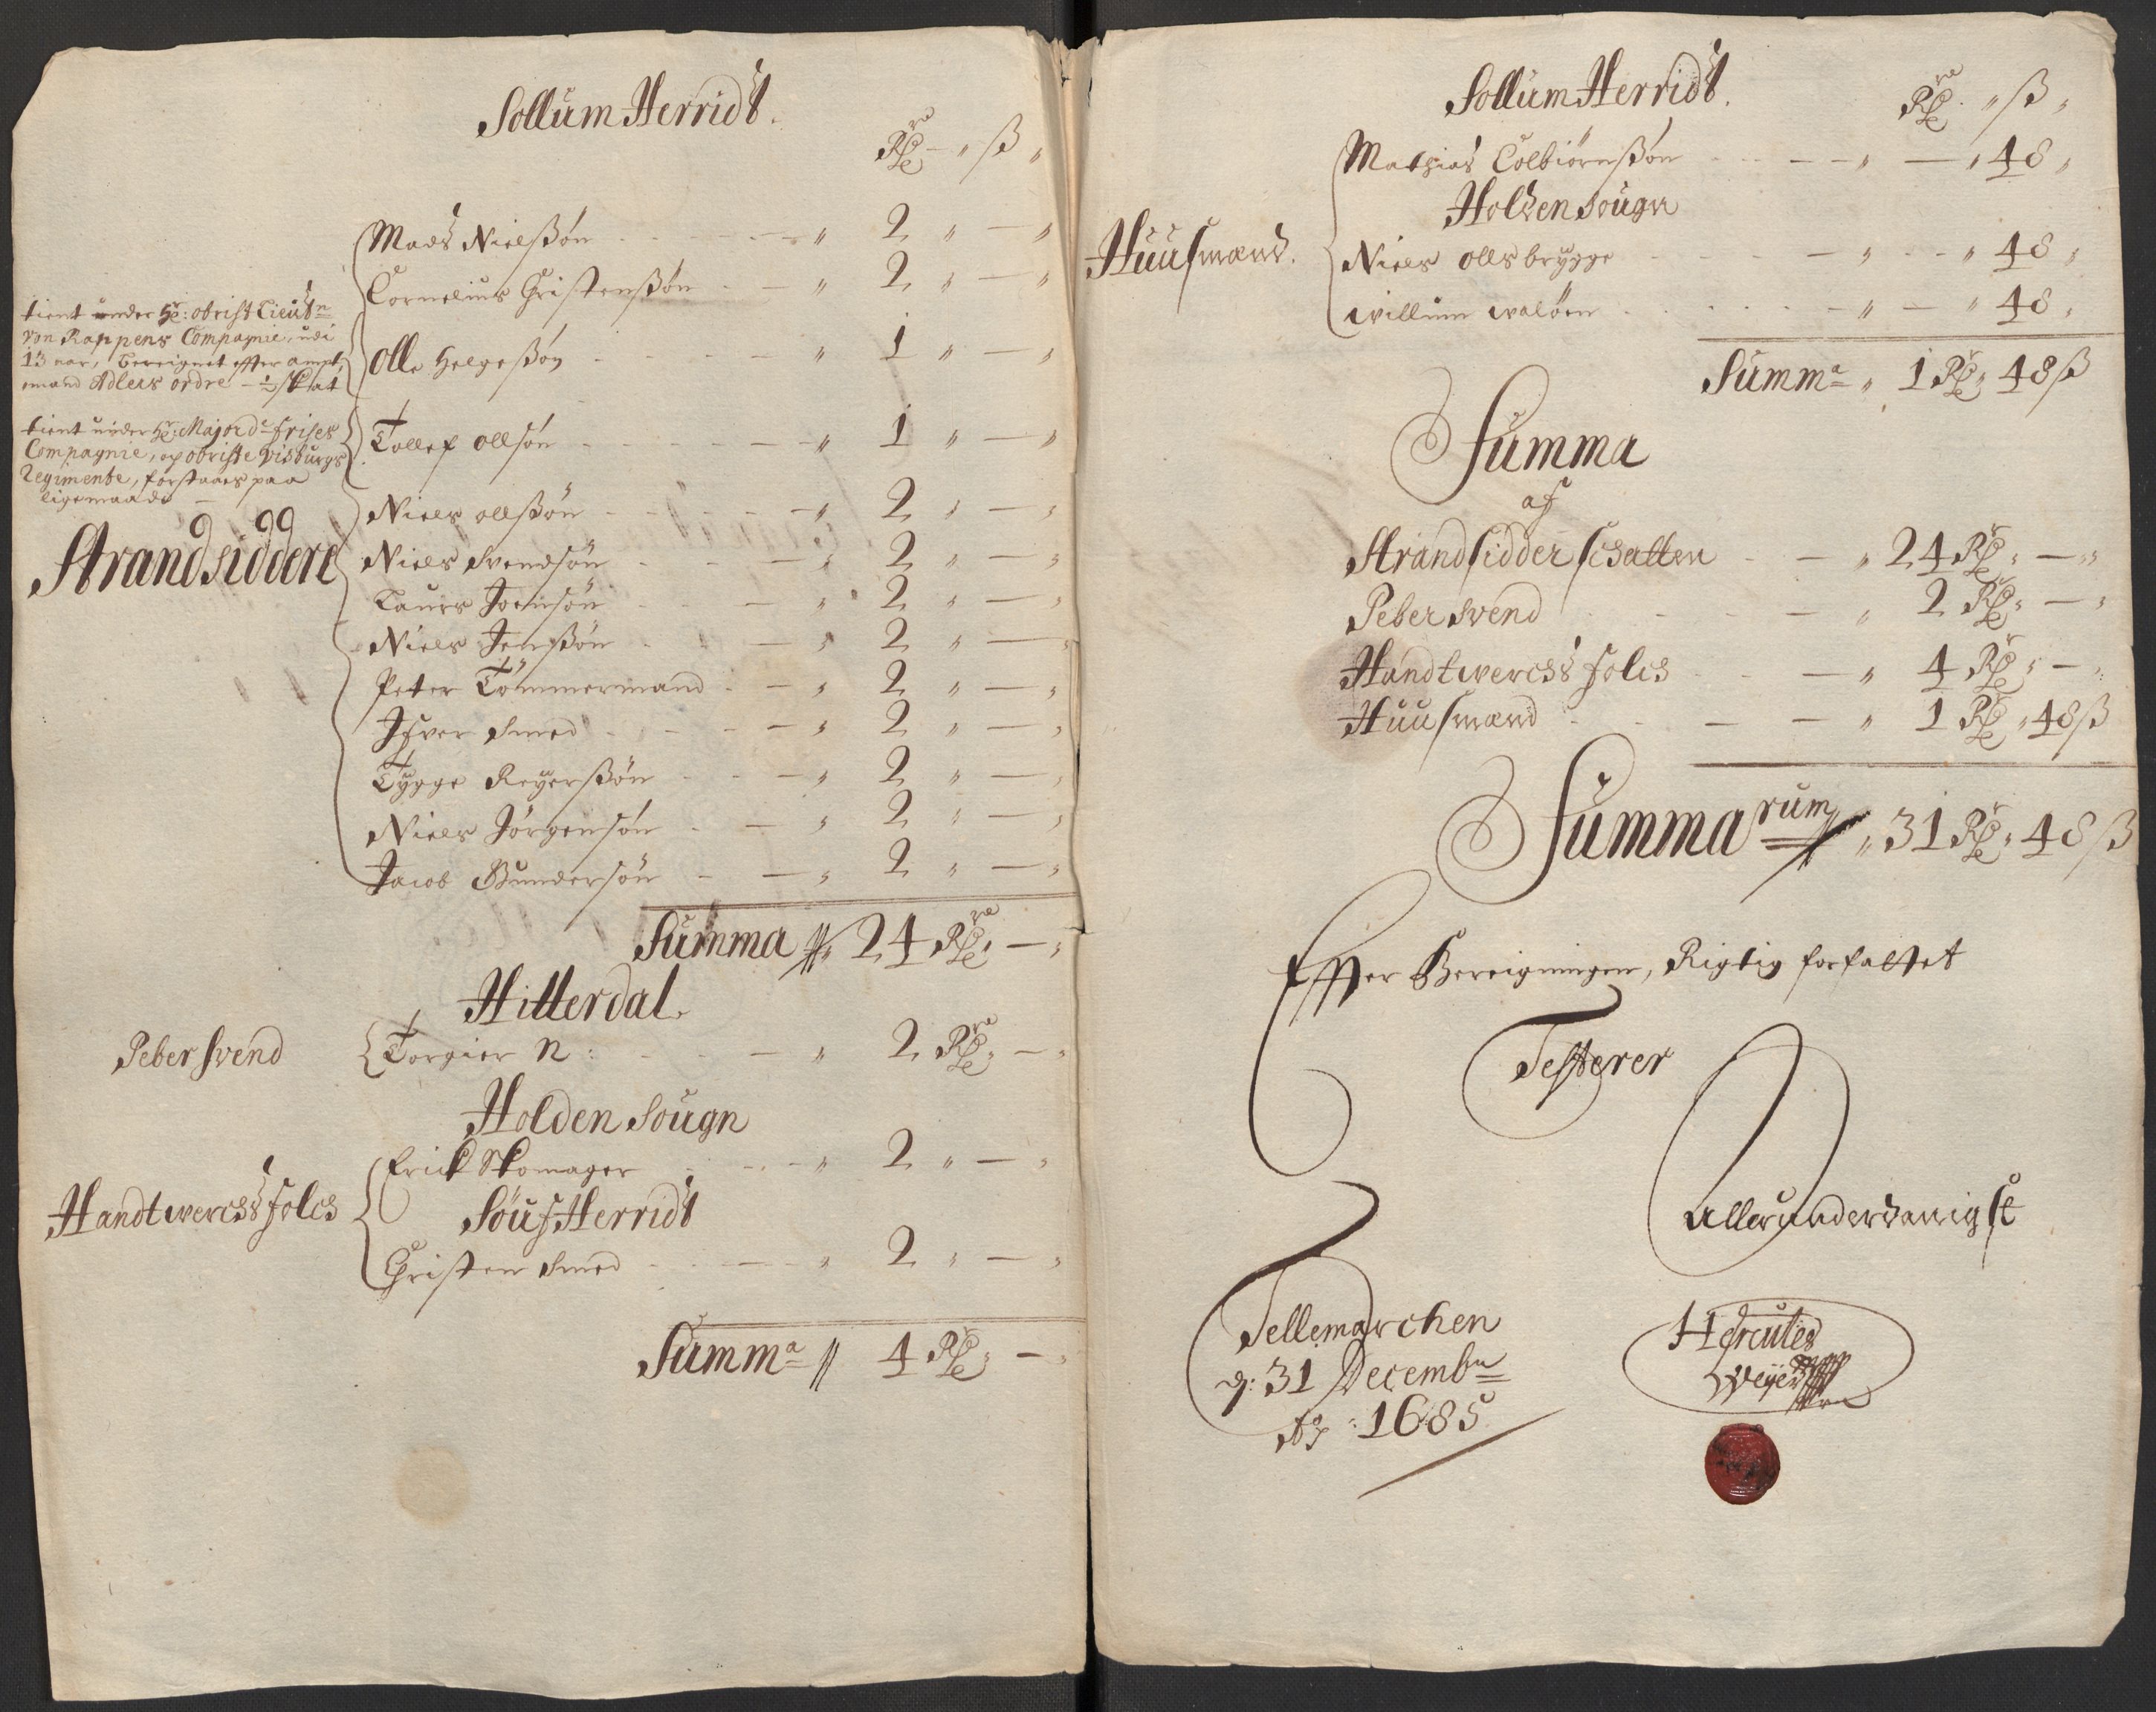 Sollum Herridt.
Rdr ß
Mads Nielßøn 2
Cornelius Christenßøn 2
tient under Hr: Obrist Lieutn
von Rappens Compagnie, udi
13 aar, bereignet effter ampt,
mand Adlers ordre - ½ skat
Olle Helgeßøn 1
tient under Hr: Major de Frises
Compagnie, og obriste Wisburgs
Regimente, forstaaes paa
lige maade
Tollef Ollsøn 1
Niels Ollßøn 2
Strandsiddere
Niels Svendsøn 2
Laurs Joensøn 2
Niels Jenßøn 2
Peter Tømmermand 2
Ifver Smed 2
Tygge Reyerßøn 2
Niels Jørgensøn 2
Jacob Gundersøn 2
Summa 24 Rdr
Hitterdal.
Peber Svend
Torgier N: 2 Rdr
Holden Sougn
Erick Skomager 2
Handtwerchs folch
Souf Herridt
Christen Smed 2
Summa 4 Rdr
Sollum Herridt.
Rdr ß
Mathias Colbiørnßøn 48
Holden Sougn
Huusmænd.
Niels Ollsbrygge 48
Willum Waløen 48
Summa 1 Rdr 48 ß
Summa
af
Strandsidder schatten 24 Rdr
Peber Svend 2 Rdr
Handtwerchs folch 4 Rdr
Huusmænd 1 Rdr 48 ß
Summarum 31 Rdr 48 ß
Effter Bereigningen, Rigtig forfattet
Testerer
Allerunderdanigst
Tellemarchen
d: 31 Decembr
Ao: 1685
Hercules
Weyer